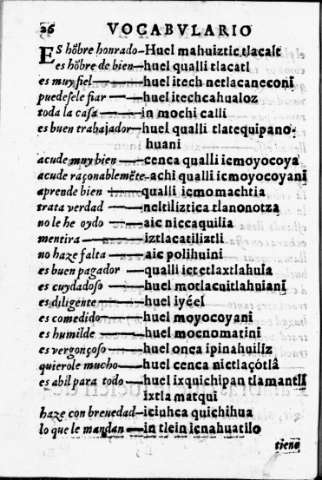 26 VOCABVLARIO
ES hõbre honrado-Huel mahuiztic tlacatl
es hõbre de bien—huel qualli tlacatl
es muy fiel——huel itech netlacaneconi
puedesele fiar——huel itechcahualoz
toda la casa——in mochi calli
es buen trabajador—huel qualli tlatequipano-
huani
acude muy bien——cenca qualli icmoyocoya
acude raçonablemẽte-achi qualli icmoyocoyani
aprende bien——qualli icmomachtia
trata verdad——neltiliztica tlanonotza
no le he oydo——aic niccaquilia
mentira——iztlacatiliztli
no haze falta——aic polihuini
es buen pagador——qualli ictetlaxtlahuia
es cuydadoso——huel motlacuitlahuiani
es diligente——huel iyéel
es comedido——huel moyocoyani
es humilde——huel mocnomatini
es vergonçoso——huel onca ipinahuiliz
quierole mucho——huel cenca nictlaçótlâ
es abil para todo—huel ixquichipan tlamantli
ixtla matqui
haze con breuedad-iciuhca quichihua
lo que le mandan—in tlein icnahuatilo
tiene